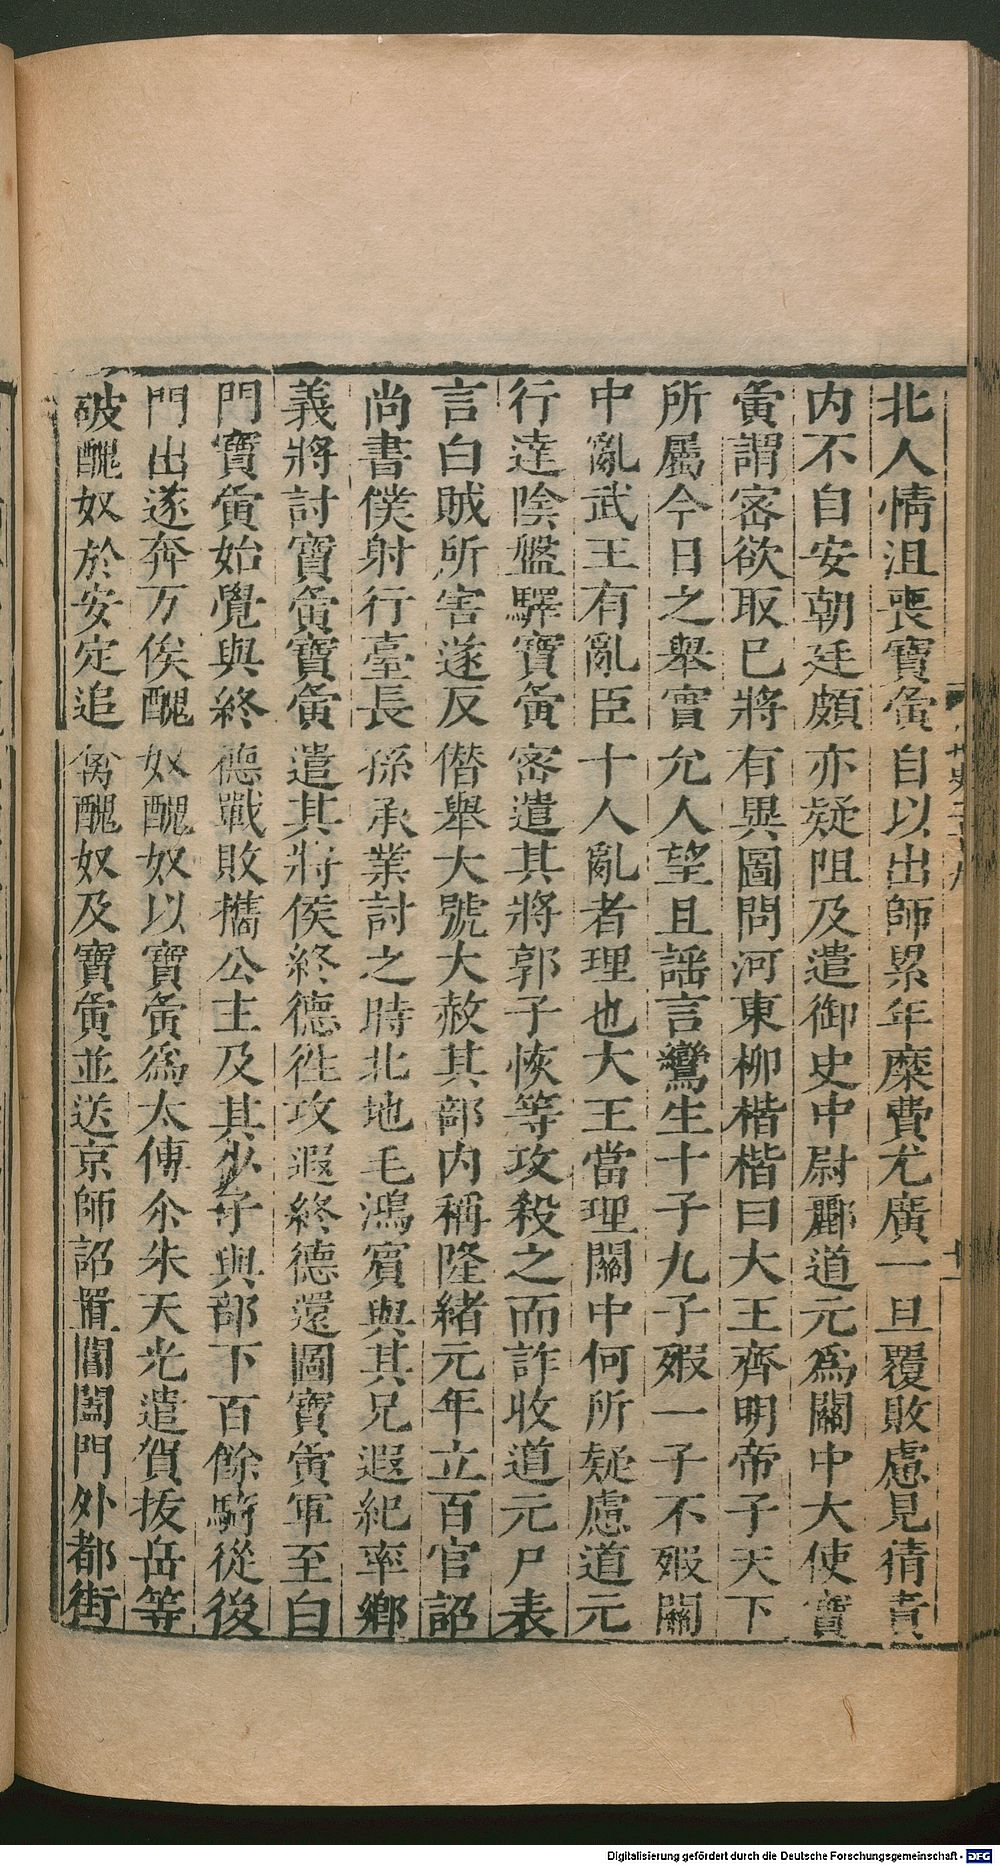 北人情沮喪寶夤自以出師累年糜費尤廣一旦覆敗慮見猜責
内不自安朝廷頗亦疑阻及遣御史中尉酈道元爲關中大使寶
夤謂密欲取已將有異圖問河東柳楷楷曰大王齊明帝子天下
所屬今日之舉實允人望且謡言鸞生十子九子㱩一子不㱩關
中亂武王有亂臣十人亂者理也大王當理關中何所疑慮道元
行達隂盤驛寶夤密遣其將郭子恢等攻殺之而詐收道元尸表
言白賊所害遂反僣舉大號大赦其部内稱隆緒元年立百官詔
尚書僕射行臺長孫承業討之時北地毛鴻賓與其兄遐紀率鄉
義將討寶夤寶夤遣其將侯終德徃攻遐終德還圖寶夤軍至白
門寶夤始覺與終德戰敗攜公主及其少子與部下百餘騎從後
門出遂奔万俟醜奴醜奴以寶夤爲太傅尒朱天光遣賀拔岳等
破醜奴於安定追禽醜奴及寶夤並送京師詔置閶闔門外都街
北史二十九
十一
Digitalisierung gefördert durch die Deutsche Forschungsgemeinschaft - DFG